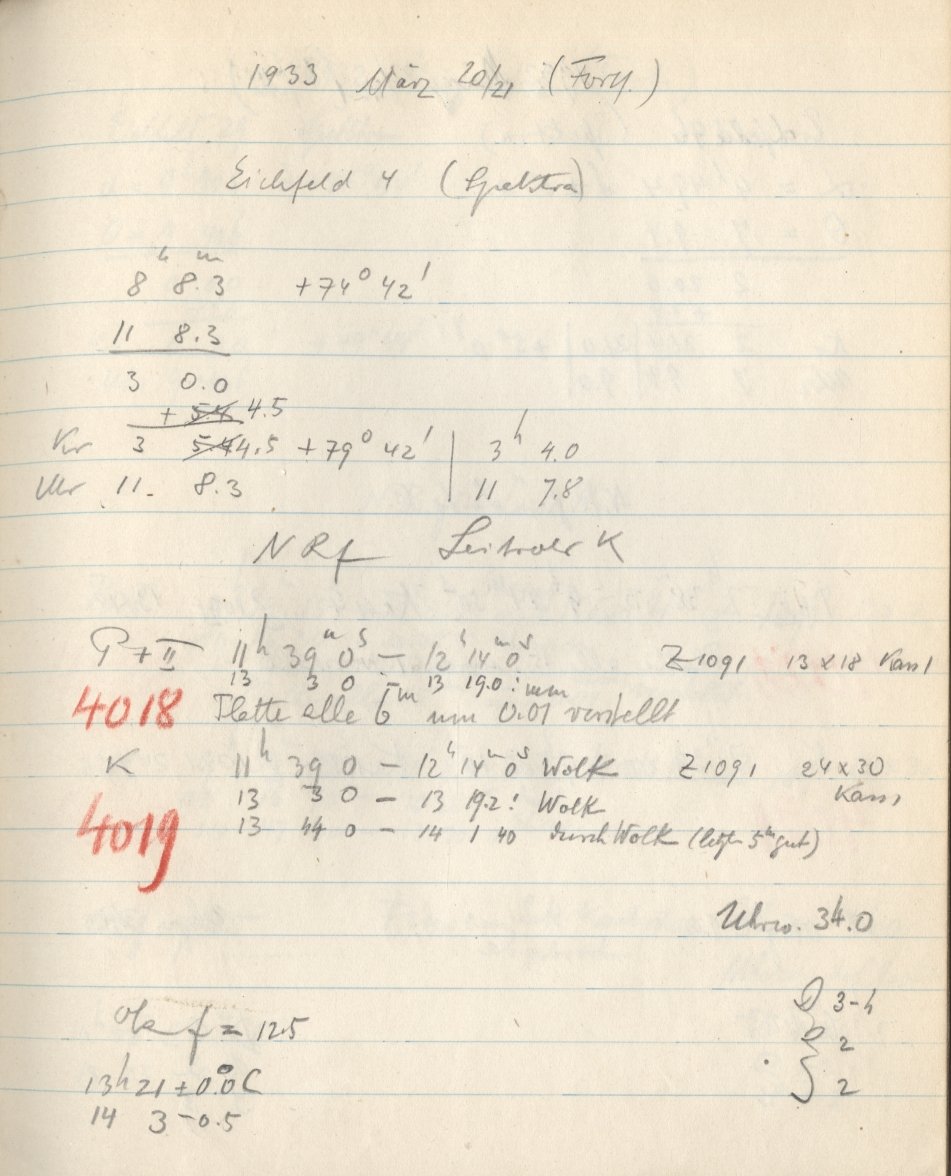 1933 März 20/21 (Forts.)
Eichfeld 4 (Spektra)
8ʰ 8.3ᵐ +74° 42'
11 8.3
3 0.0
+ 5.4 4.5
Kr 3 5.4 4.5 +79° 42' | 3ʰ 4.0
Uhr 11. 8.3 | 11 7.8
NRf Leitrohr K
P+II 11ʰ 39ᵐ 0ˢ – 12ʰ 14ᵐ 0ˢ Z 1091 13x18 Kass
13 3 0 – 13 19.0!
4018 Platte alle 5ᵐ um 0.01 verstellt
K 11ʰ 39 0 – 12ʰ 14ᵐ 0ˢ Wolk Z 1091 24x30
13 3 0 – 13 19.2! Wolk Kass
4019 13 44 0 – 14 1 40 durch Wolk (letzte 5ᵐ gut)
Uhrw. 34.0
Ok f = 12.5
D 3-4
2
13ʰ 21 ±0.0°C
2
14 3 -0.5